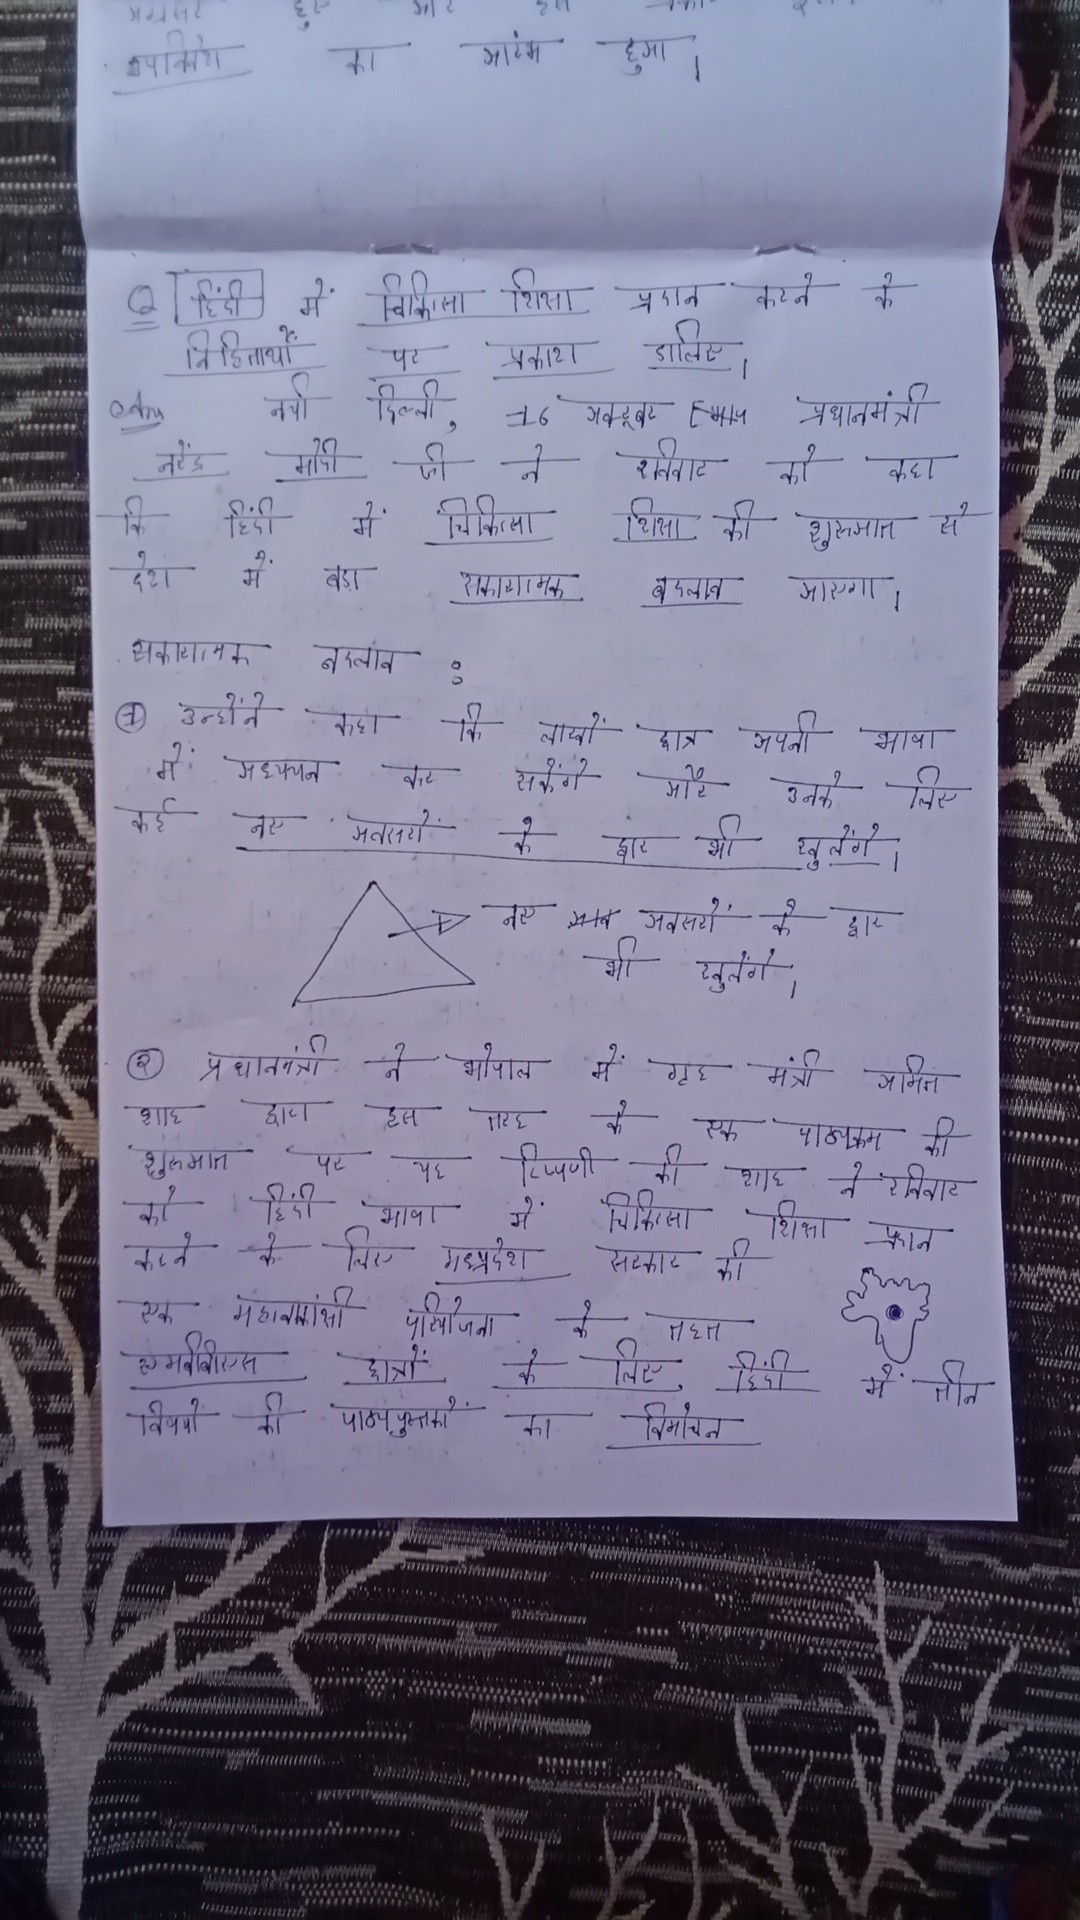 उपनिवेश का आरंभ हुआ।
Q हिंदी में चिकित्सा शिक्षा प्रदान करने के
निहितार्थों पर प्रकाश डालिए।
नयी दिल्ली, 16 अक्टूबर प्रधानमंत्री
नरेंद्र मोदी जी ने रविवार को कहा
कि हिंदी में चिकित्सा शिक्षा की शुरुआत से
देश में बड़ा सकारात्मक बदलाव आएगा।
सकारात्मक बदलाव :
① उन्होंने कहा कि लाखों छात्र अपनी भाषा
में अध्ययन कर सकेंगे और उनके लिए
कई नए अवसरों के द्वार भी खुलेंगे।
नए अवसरों के द्वार
भी खुलेंगे।
② प्रधानमंत्री ने भोपाल में गृह मंत्री अमित
शाह द्वारा इस तरह के एक पाठ्यक्रम की
शुरुआत पर यह टिप्पणी की शाह ने रविवार
को हिंदी भाषा में चिकित्सा शिक्षा प्रदान
करने के लिए मध्यप्रदेश सरकार की
एक महत्वाकांक्षी परियोजना के तहत
एमबीबीएस छात्रों के लिए हिंदी में तीन
विषयों की पाठ्यपुस्तकों का विमोचन